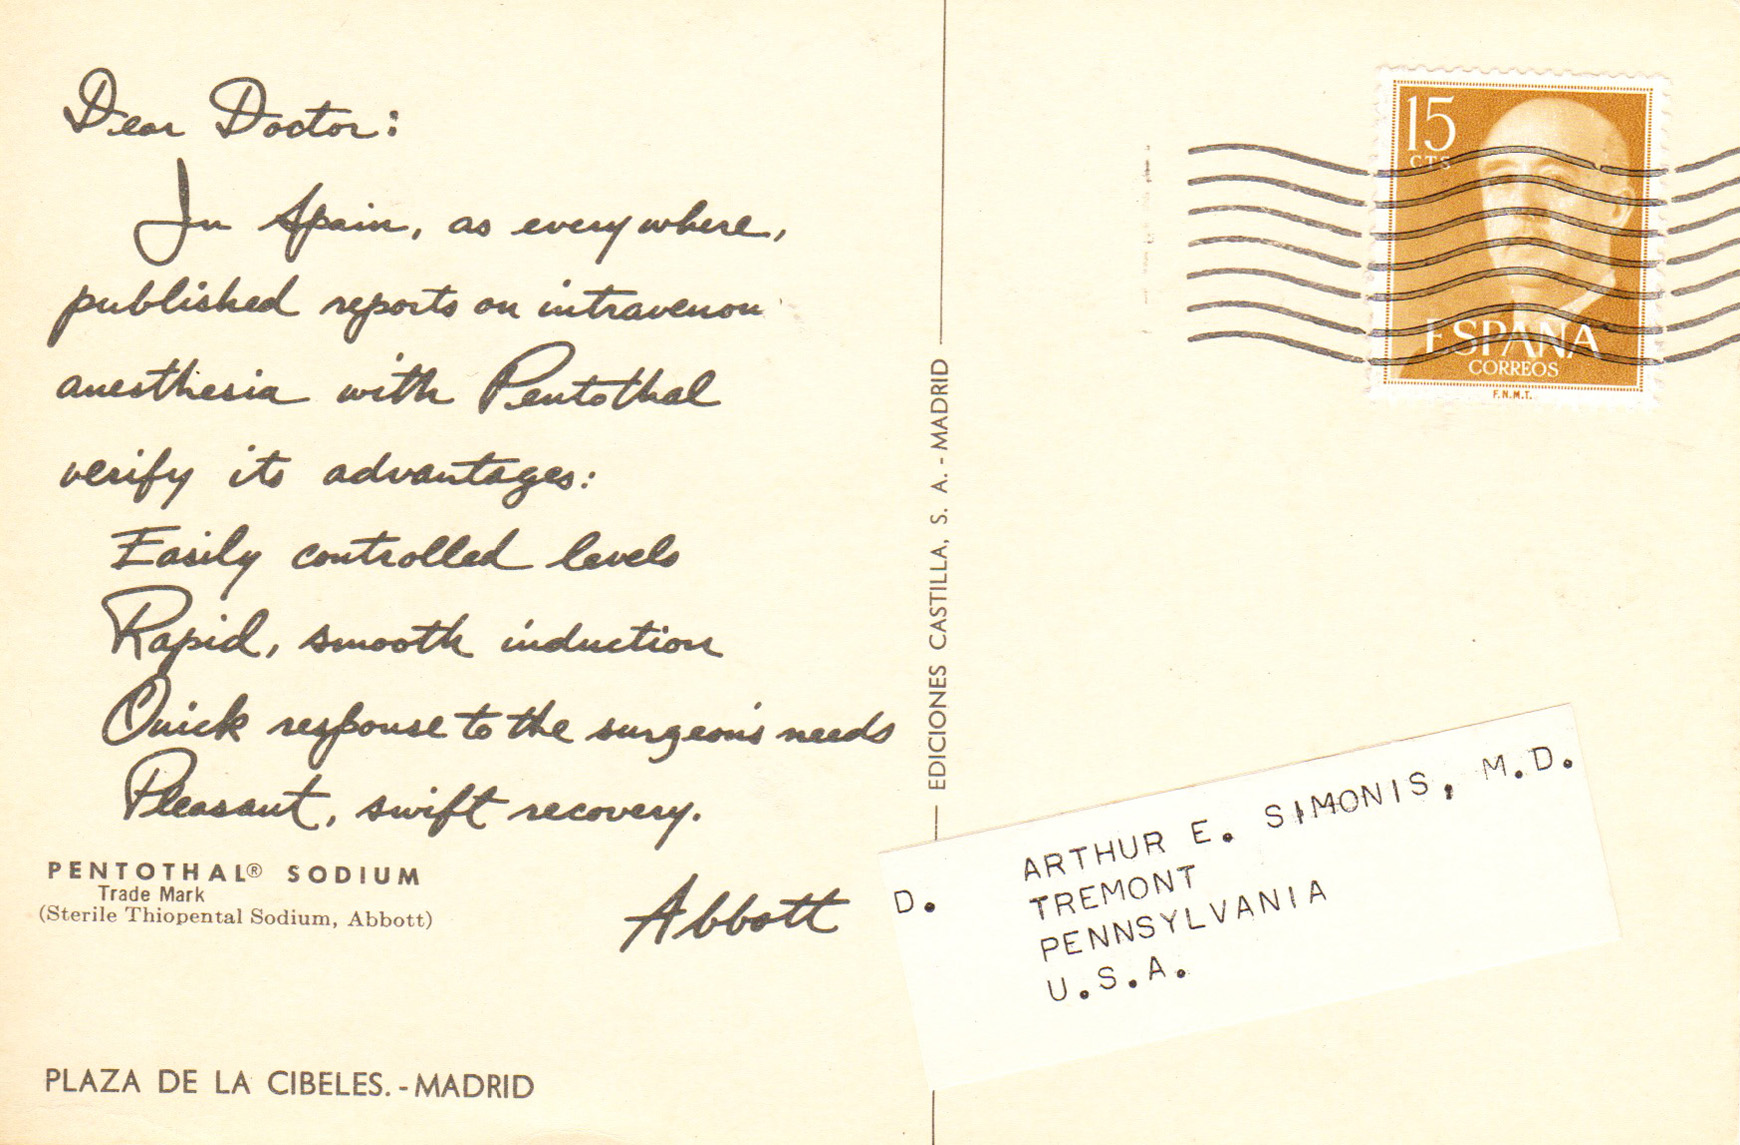 Dear Doctor:
In Spain, as everywhere,
published reports on intravenou
anesthesia with Pentothal
verify its advantages:
Easily controlled levels
Rapid, smooth induction
Quick response to the surgeon's needs
Pleasant, swift recovery.
Abbott
PENTOTHAL® SODIUM
Trade Mark
(Sterile Thiopental Sodium, Abbott)
PLAZA DE LA CIBELES. - MADRID
EDICIONES CASTILLA, S. A. - MADRID
15
CTS
ESPAÑA
CORREOS
F.N.M.T.
D. ARTHUR E. SIMONIS, M.D.
TREMONT
PENNSYLVANIA
U.S.A.